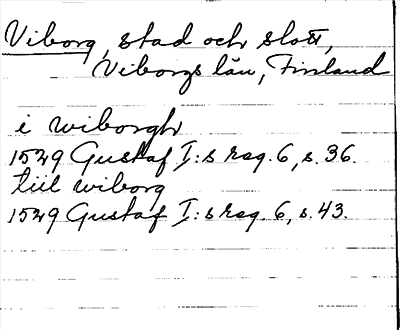 Viborg, stad och slott,
Viborgs län, Finland
i wiborgh
1529 Gustaf I:s reg. 6, s. 36.
tiil wiborg
1529 Gustaf I:s reg. 6, s. 43.